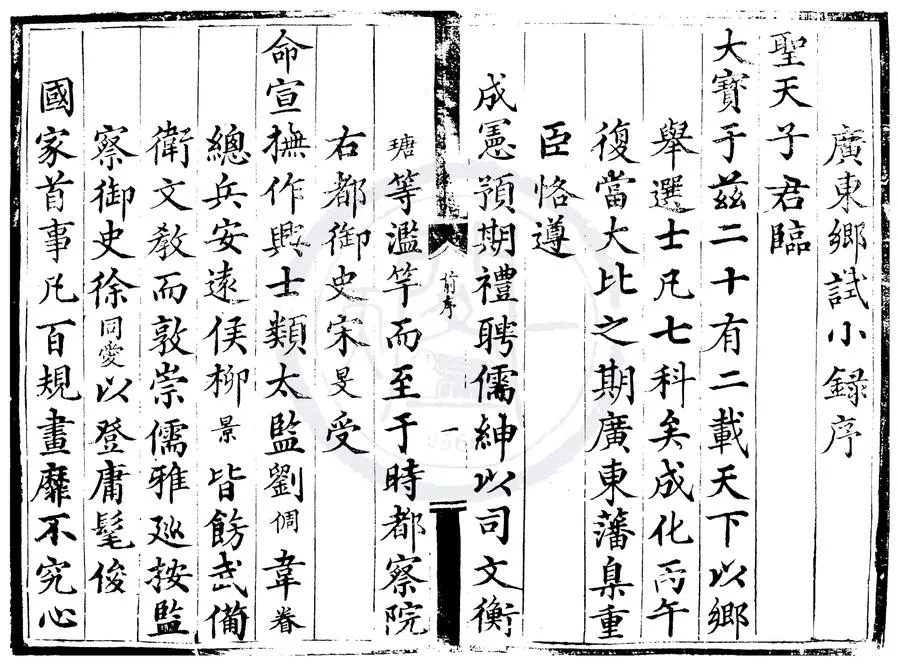 廣東鄉試小録序
聖天子君臨
大寳于兹二十有二載天下以鄉
舉選士凡七科矣成化丙午
復當大比之期廣東藩臬重
臣恪遵
成憲預期禮聘儒紳以司文衡
前序
一
瑭等濫竽而至于時都察院
右都御史宋旻受
命宣撫作興士類太監劉倜韋眷
總兵安遠侯柳景皆飭武備
衛文教而敦崇儒雅廵按監
察御史徐同愛以登庸髦俊
國家首事凡百規畫靡不究心